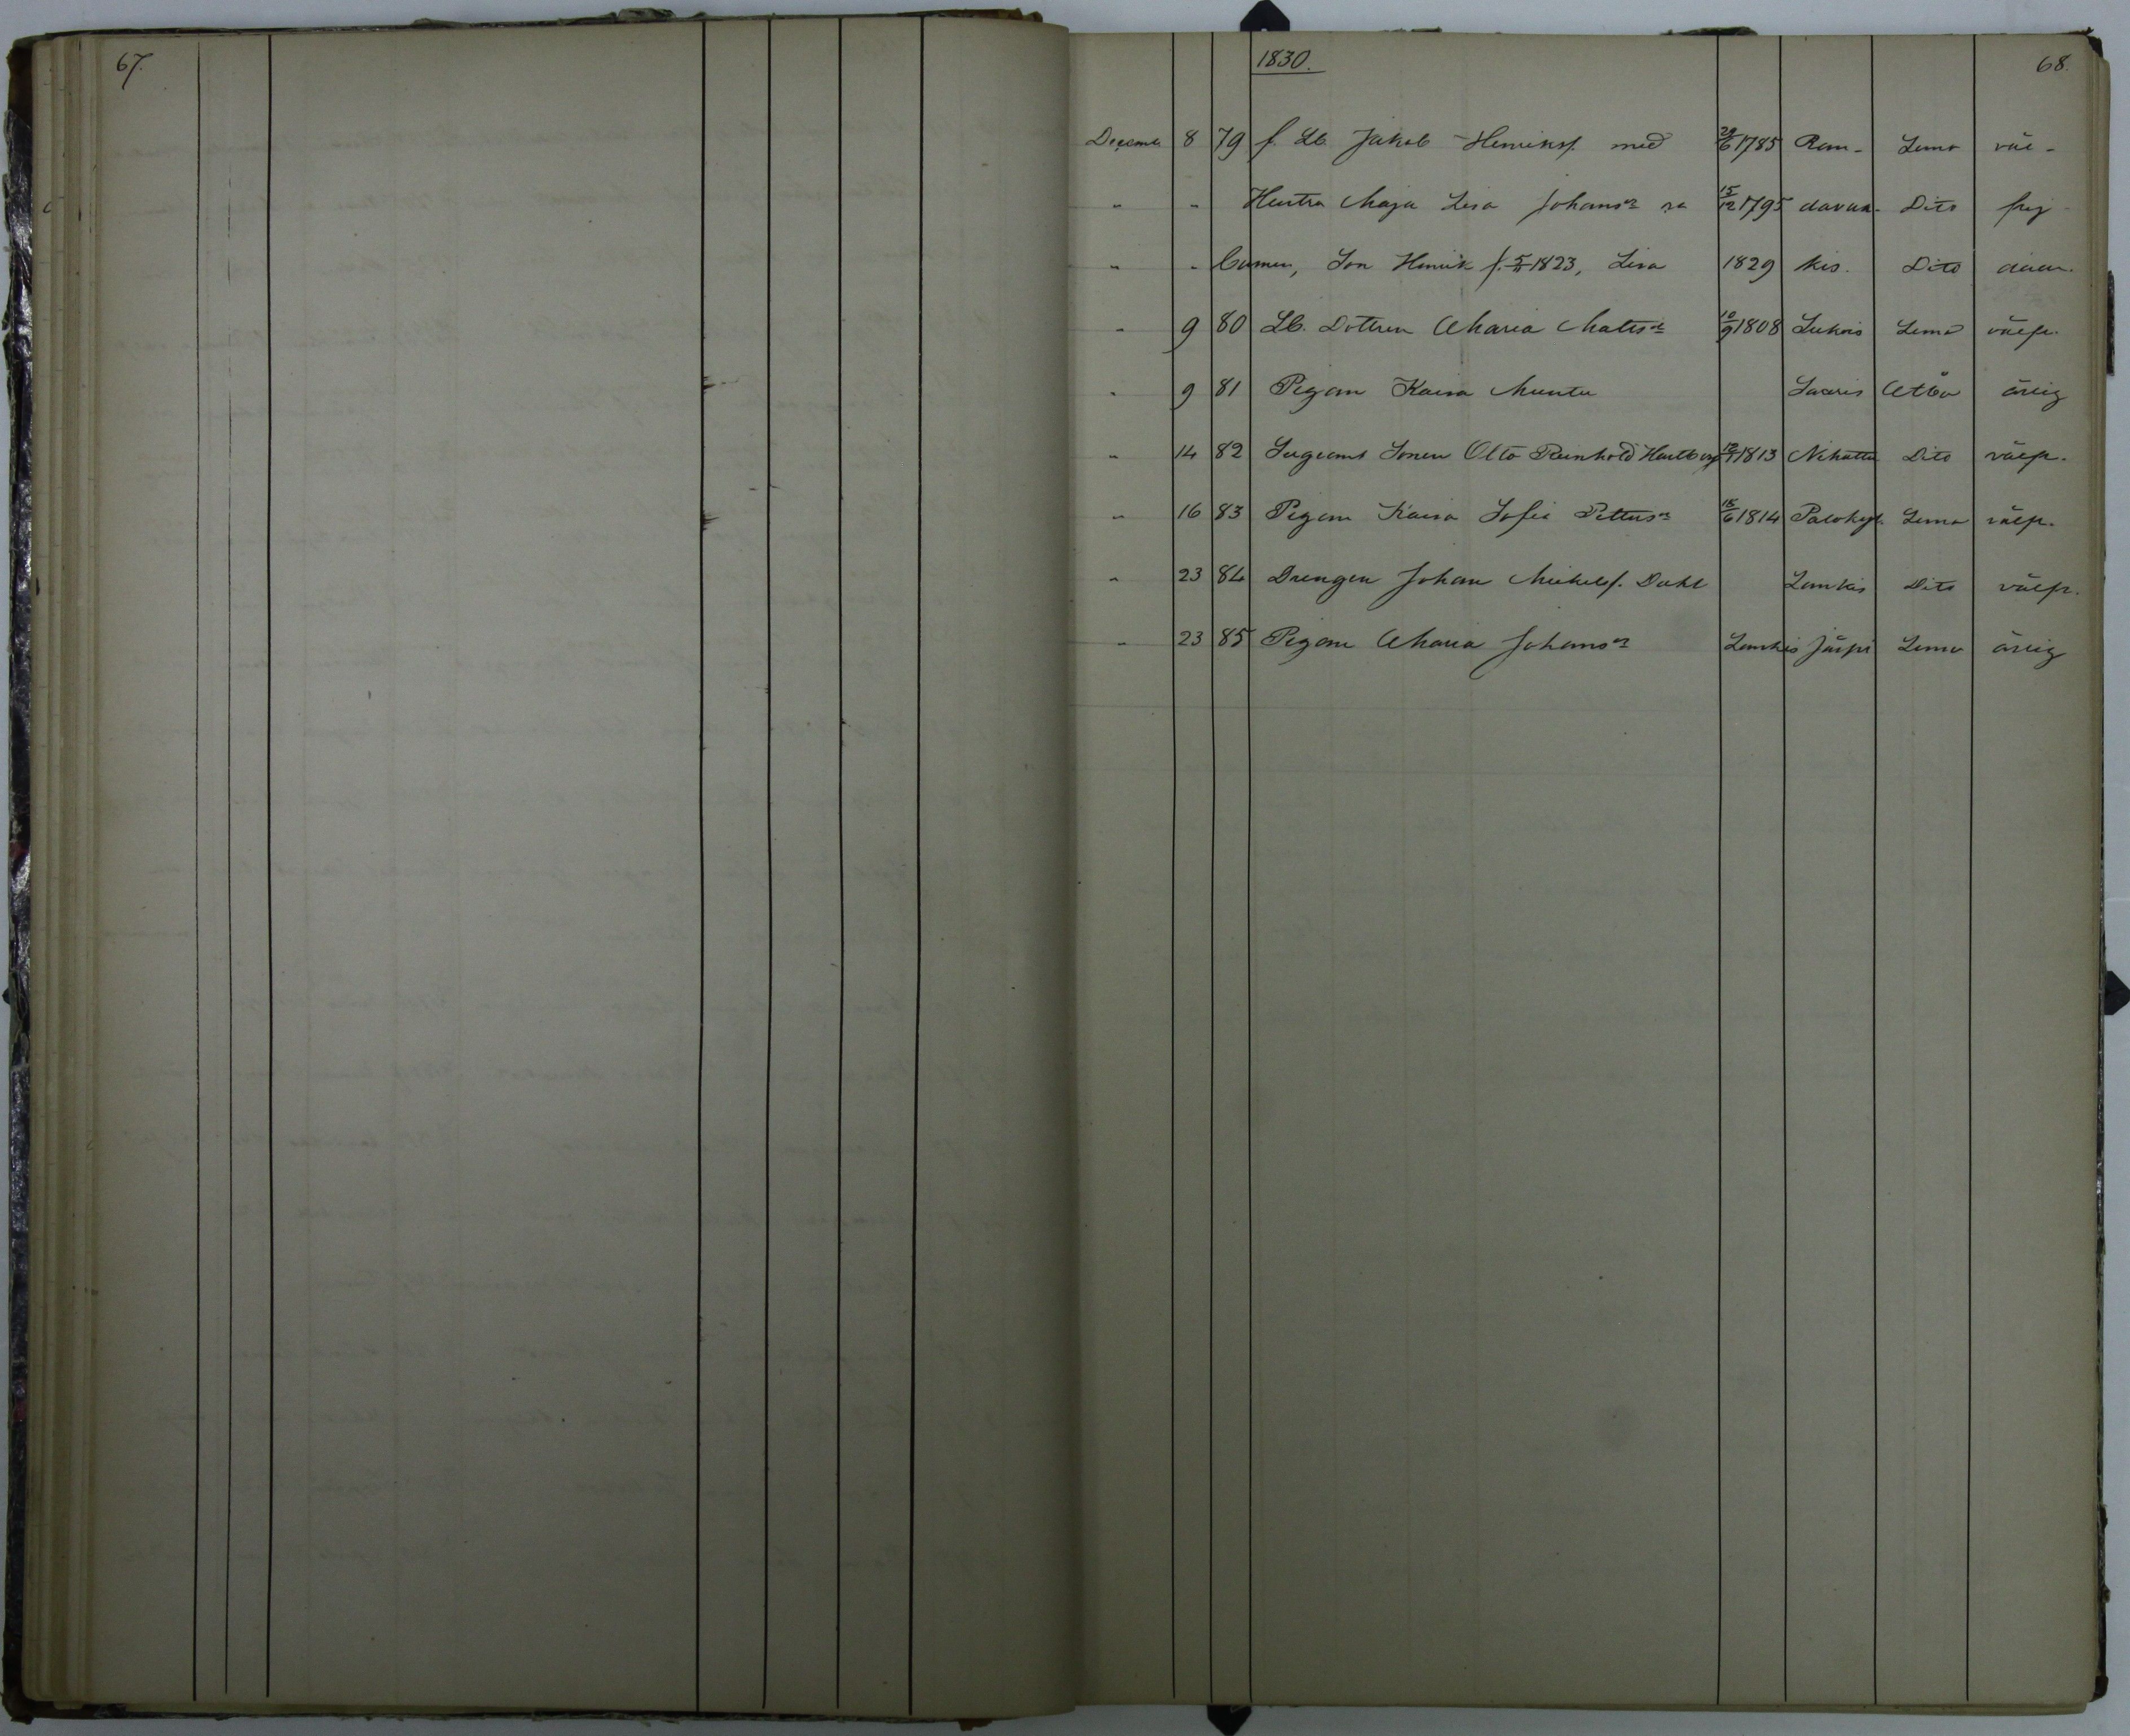 67.
1830. 68.
Decemb. 8 79 f. Lb. Jakob Henriksf. med 29/6 1785 Ram- Lemo väl-
" " Hustru Maja Lisa Johansdr 15/12 1795 davan- Dito frej
" " barnen, Son Henrik f. 5/11 1823, Lisa 1829 kis. Dito
" 9 80 Lb. Dottren Maria Matsdr 10/9 1808 Lukois Lemo välfr.
" 9 81 Pigan Kaisa Muntu Saaris Åbo ärlig
" 14 82 Sergeant Sonen Otto Reinhold 1813 Nihattu Dito välfr.
" 16 83 Pigan Kaisa Sofia Pettersdr 18/6 1814 Palokyl. Lemo välfr.
" 23 84 Drengen Johan Mickelsf. Dahl Lemkis Dito välfr.
" 23 85 Pigan Maria Johansdr Lemkis Järpi Lemo ärlig